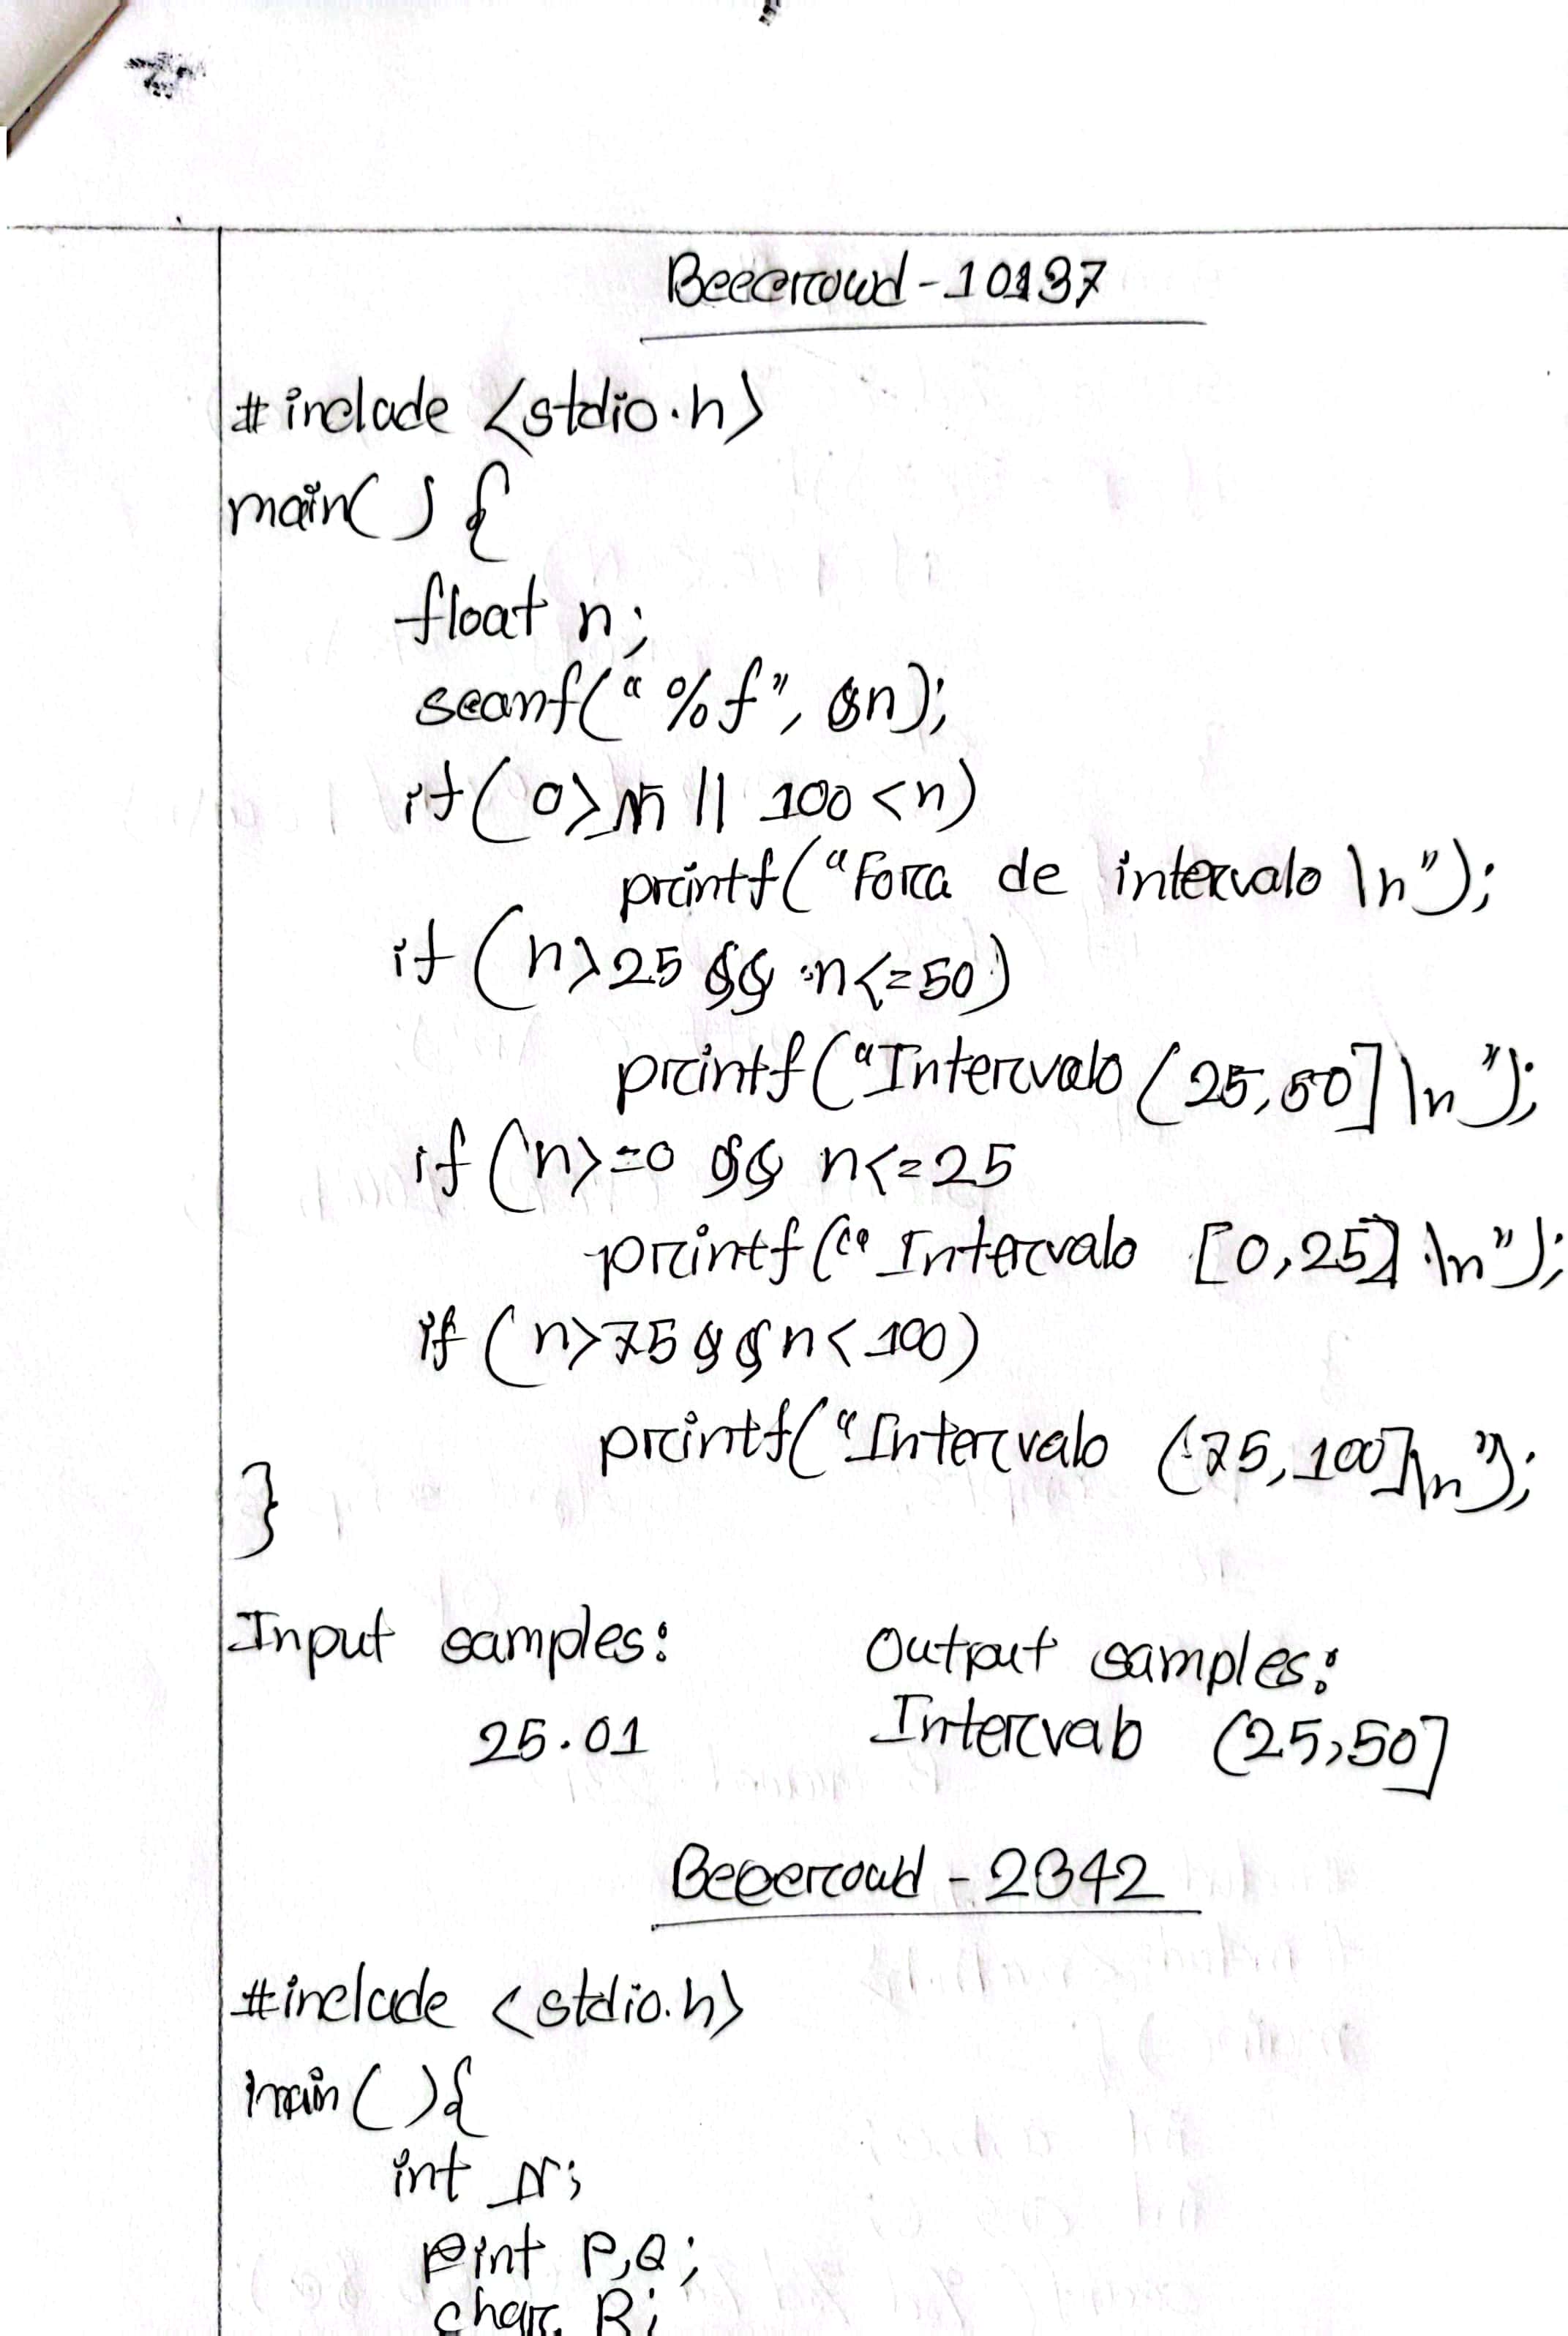 Beecrowd - 10137
#include <stdio.h>
main() {
float n;
scanf("%f", &n);
if(0>n || 100<n)
printf("Fora de intervalo \n");
if (n>25 && n<=50)
printf("Intervalo (25,50] \n");
if (n>=0 && n<=25
printf("Intervalo [0,25] \n");
if (n>75 && n<100)
printf("Intervalo (75,100]\n");
}
Input samples: Output samples:
25.01 Intervalo (25,50]
Beecrowd - 2342
#include <stdio.h>
main(){
int N;
int P,Q;
char R;